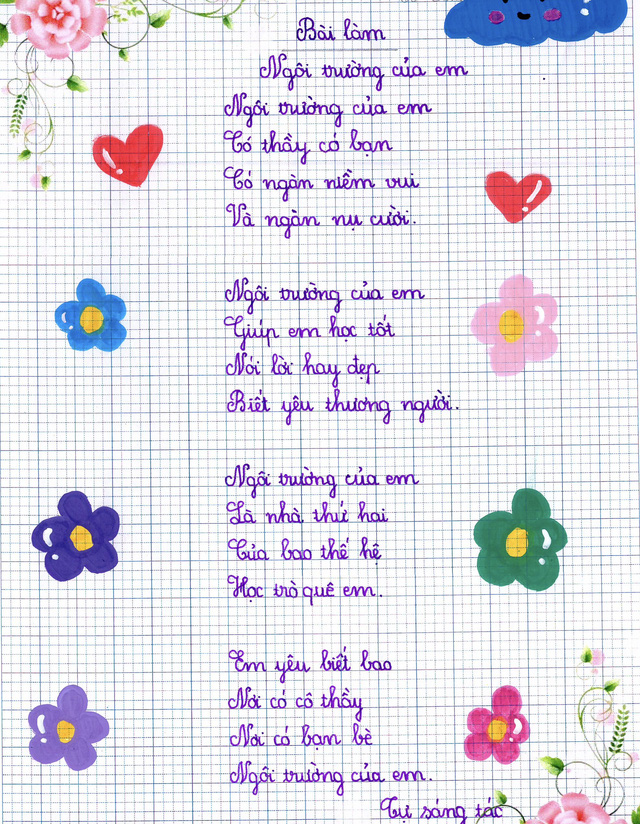 Bài làm
Ngôi trường của em
Ngôi trường của em
Có thầy có bạn
Có ngàn niềm vui
Và ngàn nụ cười.
Ngôi trường của em
Giúp em học tốt
Nói lời hay đẹp
Biết yêu thương người.
Ngôi trường của em
Là nhà thứ hai
Của bao thế hệ
Học trò quê em.
Em yêu biết bao
Nơi có cô thầy
Nơi có bạn bè
Ngôi trường của em.
Tự sáng tác